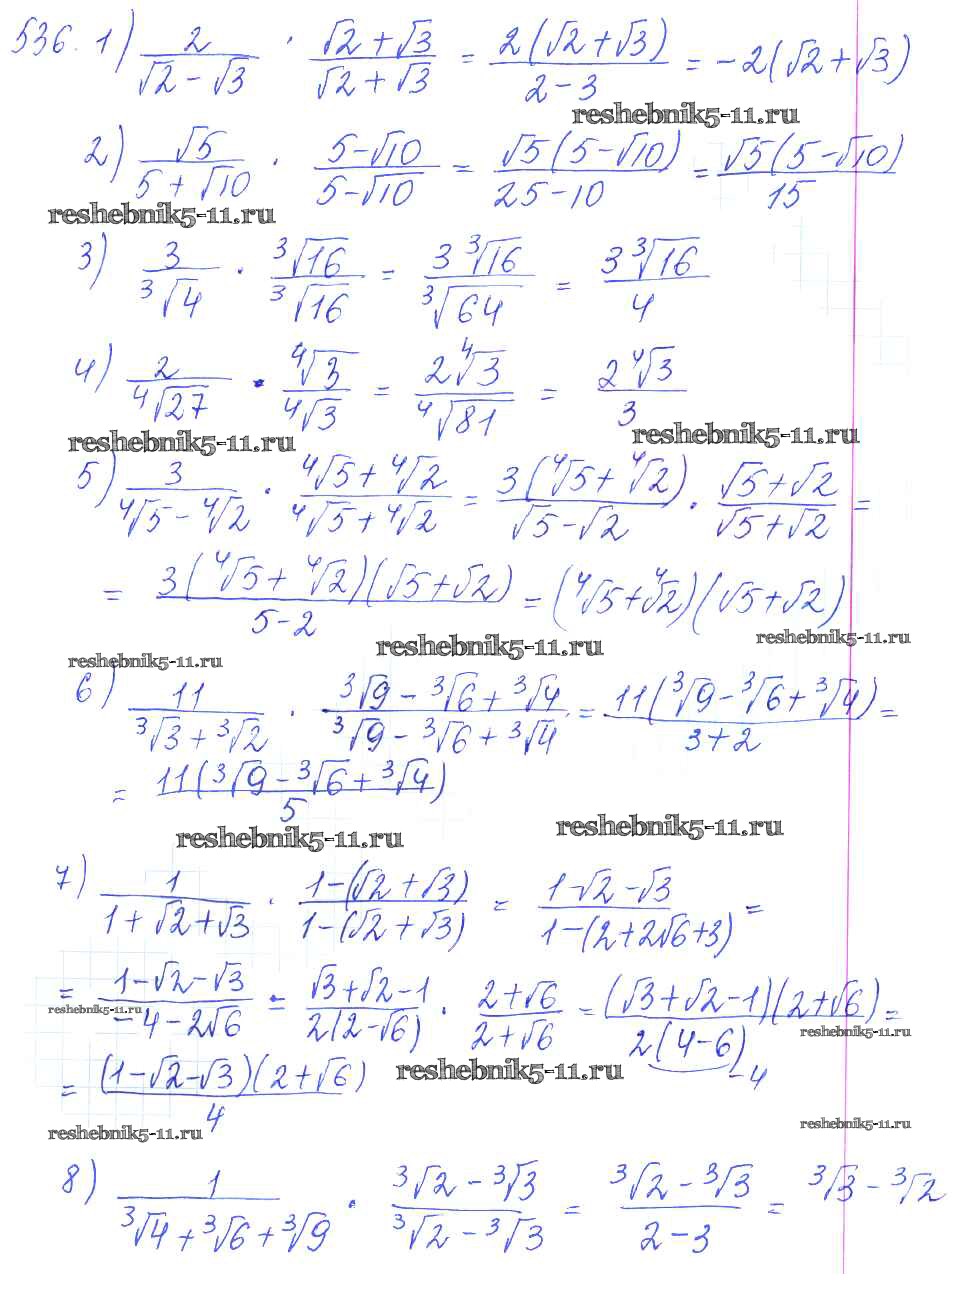 536. 1) 2/(√2 − √3) · (√2 + √3)/(√2 + √3) = 2(√2 + √3)/(2 − 3) = −2(√2 + √3)
reshebnik5-11.ru
2) √5/(5 + √10) · (5 − √10)/(5 − √10) = √5(5 − √10)/(25 − 10) = √5(5 − √10)/15
reshebnik5-11.ru
3) 3/∛4 · ∛16/∛16 = 3∛16/∛64 = 3∛16/4
4) 2/∜27 · ∜3/∜3 = 2∜3/∜81 = 2∜3/3
reshebnik5-11.ru reshebnik5-11.ru
5) 3/(∜5 − ∜2) · (∜5 + ∜2)/(∜5 + ∜2) = 3(∜5 + ∜2)/(√5 − √2) · (√5 + √2)/(√5 + √2) =
= 3(∜5 + ∜2)(√5 + √2)/(5 − 2) = (∜5 + ∜2)(√5 + √2)
reshebnik5-11.ru reshebnik5-11.ru reshebnik5-11.ru
6) 11/(∛3 + ∛2) · (∛9 − ∛6 + ∛4)/(∛9 − ∛6 + ∛4) = 11(∛9 − ∛6 + ∛4)/(3 + 2) =
= 11(∛9 − ∛6 + ∛4)/5
reshebnik5-11.ru reshebnik5-11.ru
7) 1/(1 + √2 + √3) · (1 − (√2 + √3))/(1 − (√2 + √3)) = (1 − √2 − √3)/(1 − (2 + 2√6 + 3)) =
= (1 − √2 − √3)/(−4 − 2√6) = (√3 + √2 − 1)/(2(2 − √6)) · (2 + √6)/(2 + √6) = (√3 + √2 − 1)(2 + √6)/(2(4 − 6)) =
−4
reshebnik5-11.ru reshebnik5-11.ru
= (1 − √2 − √3)(2 + √6)/4
reshebnik5-11.ru
reshebnik5-11.ru reshebnik5-11.ru
8) 1/(∛4 + ∛6 + ∛9) · (∛2 − ∛3)/(∛2 − ∛3) = (∛2 − ∛3)/(2 − 3) = ∛3 − ∛2